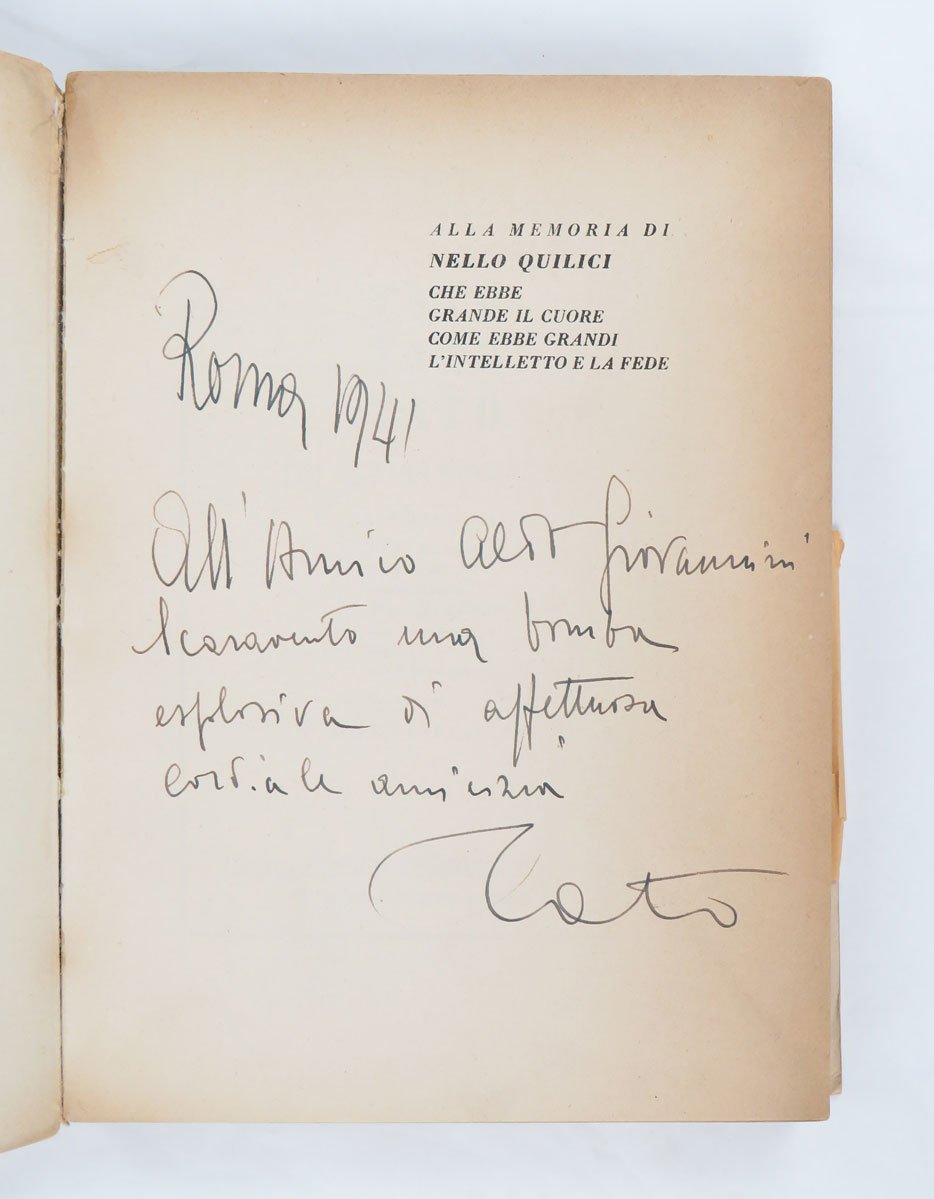 ALLA MEMORIA DI
NELLO QUILICI
CHE EBBE
GRANDE IL CUORE
COME EBBE GRANDI
L'INTELLETTO E LA FEDE
Roma 1941
All'Amico Aldo Giovannini
scaravento una bomba
esplosiva di affettuosa
cordiale amicizia
Tato